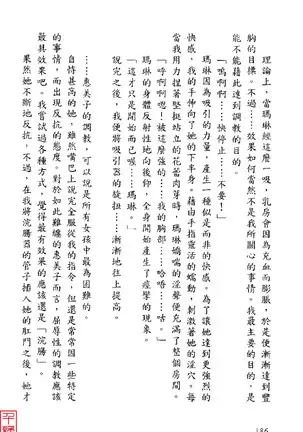 理論上，當瑪琳經這麼一吸，乳房會因為充血而膨脹，於是便漸漸達到豐
胸的目標。不過……效果如何當然不是我所關心的事情。我最主要的目的，是
能不能藉此達到調教的目的。
「嗚啊啊……快停止……不要！」
瑪琳因為吸引的力量，產生一種似是而非的快感。為了讓她達到更強烈的
快感，我的手伸向了她的下半身。藉由手指靈活的蠕動，刺激著她的淫穴。每
當我用力捏著堅挺站立的花蕾肉芽時，瑪琳嬌喘的淫聲便充滿了整個房間。
「呼啊啊嗯！被這麼強的……我的胸部……哈唔……咕」
瑪琳的身體反射性地向後仰，全身開始產生了痙攣的現象。
「這才只是開始而已喔……瑪琳。」
說完之後，我便將吸引器的旋扭……漸漸地往上提高。
……惠美子的調教，可以說是所有女孩中最為困難的。
自恃甚高的她，雖然嘴巴上說完全服從我的指令，但還是常常因一些特定
的事情，而出現反抗的態度。對於如此難纏的惠美子而言，屈辱性的調教應該
最具效果吧。我嘗試過各種方式，覺得最有效果的應該還是「浣腸」。
果然她不斷地反抗。不過，在我將浣腸器的管子插入她的肛門之後，她才
186